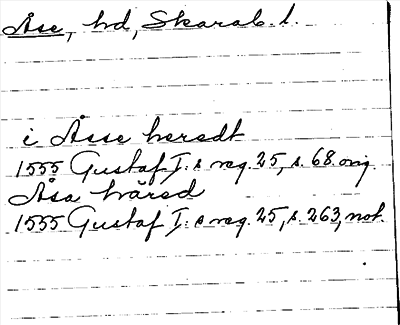 Åse, hd, Skarab. l.
i Åsse heredt
1555 Gustaf I:s reg. 25, s. 68 orig.
Åsa härad
1555 Gustaf I:s reg. 25, s. 263, not.